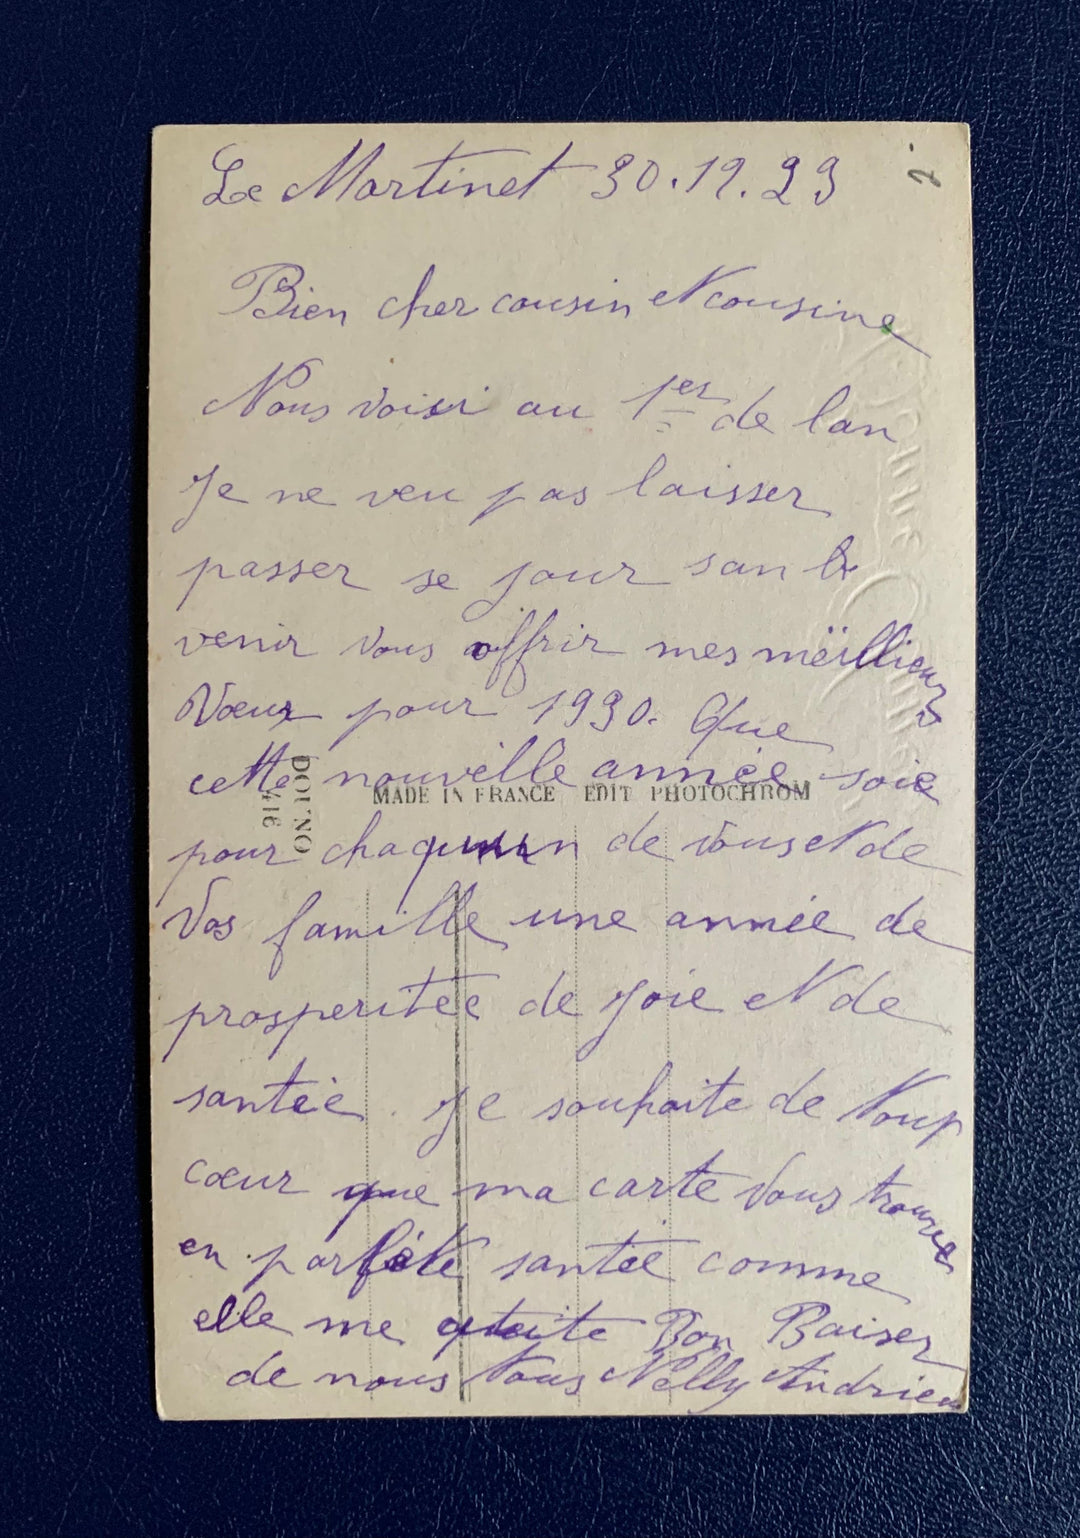 Le Martinet 30.12.29
Bien cher cousin et cousine
Nous voisi au 1er de lan
Je ne veu pas laisser
passer se jour san
venir vous offrir mes meillieur
Vœux pour 1930. Que
cette nouvelle année soie
MADE IN FRANCE EDIT PHOTOCHROM
416
pour chaquun de vous et de
Vos famille une année de
prosperitée de joie et de
santée. Je souhaite de tout
cœur que ma carte vous trouve
en parfète santée comme
elle me Bon Baiser
de nous tous Nelly Andrieu
Bonne Année